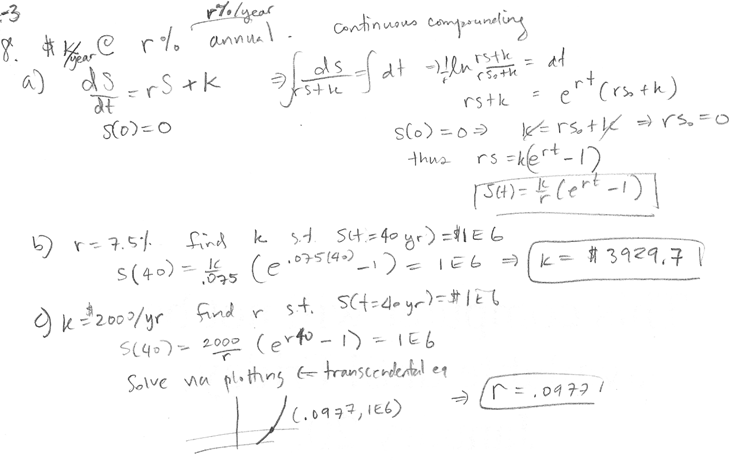 -3
r%/year
8. $ k/year @ r% annual. continuous compounding
a) dS/dt = rS + k ⇒ ∫ ds/rs+k = ∫ dt ⇒ 1/r ln rs+k/rs₀+k = dt
rs+k = e^rt (rs₀+k)
S(0)=0
S(0)=0 ⇒ k = rs₀+k ⇒ rs₀=0
thus rs = k(e^rt -1)
S(t) = k/r (e^rt -1)
b) r = 7.5% find k s.t. S(t=40 yr) = $1E6
S(40) = k/.075 (e^.075(40) -1) = 1E6 ⇒ k = $3929.7
c) k = $2000/yr find r s.t. S(t=40 yr) = $1E6
S(40) = 2000/r (e^r40 -1) = 1E6
Solve via plotting ← transcendental eq
(.0977, 1E6) ⇒ r = .0977